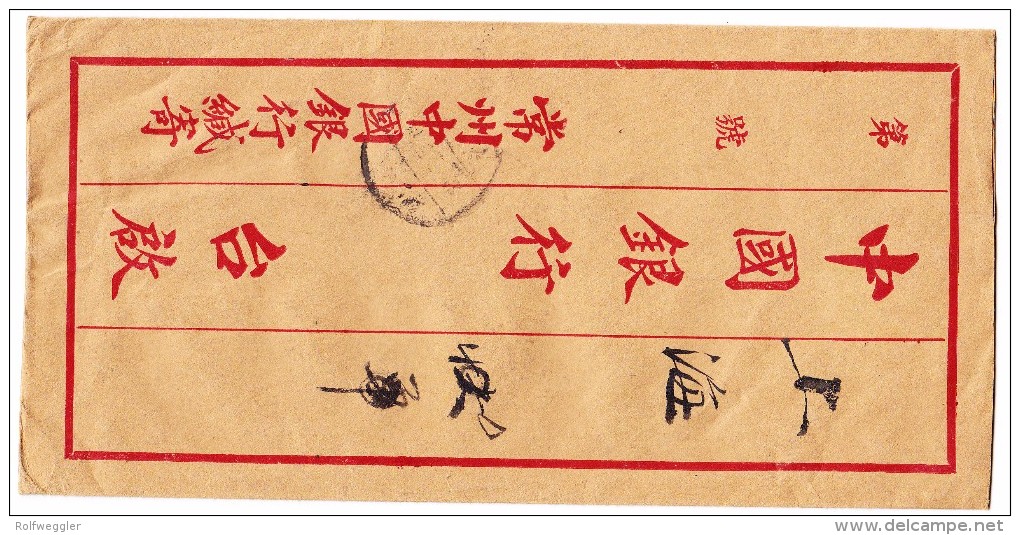 上海
中國銀行 台啟
第 號 常州中國銀行緘寄
Rolfweggler
www.delcampe.net